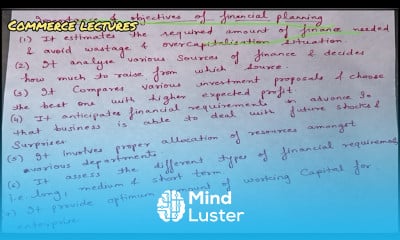 COMMERCE LECTURES
& objectives of financial planning
(1) It estimates the required amount of finance needed
& avoid wastage & overcapitalisation situation.
(2) It analyse various sources of finance & decides
how much to raise from which source.
(3) It Compares various investment proposals & choose
the best one with higher expected profit.
(4) It anticipates financial requirements in advance so
that business is able to deal with future shocks &
Surprises.
(5) It involves proper allocation of resources amongst
various departments.
(6) It assess the different types of financial requirements
i.e long, medium & short term.
It provide optimum amount of working Capital for
enterprise
Mind
Luster